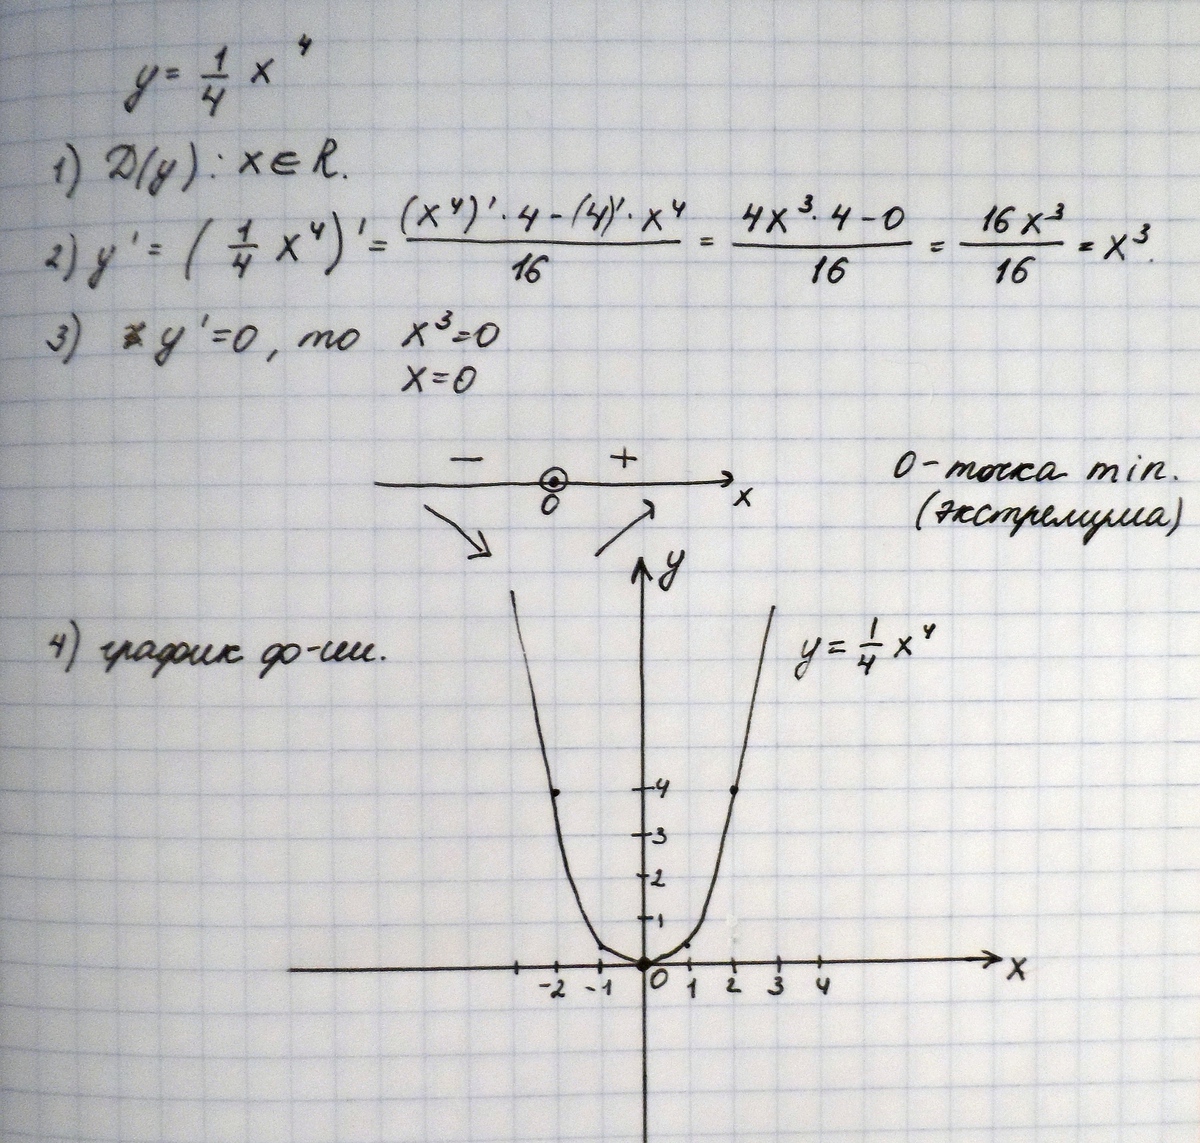 y = 1/4 x⁴
1) D(y): x ∈ R.
2) y' = (1/4 x⁴)' = ((x⁴)'·4 - (4)'·x⁴)/16 = (4x³·4 - 0)/16 = 16x³/16 = x³.
3) y' = 0, то x³ = 0
x = 0
− +
0 x
0 - точка min.
(экстремума)
y
4) график ф-ции.
y = 1/4 x⁴
4
3
2
1
-2 -1 0 1 2 3 4 x